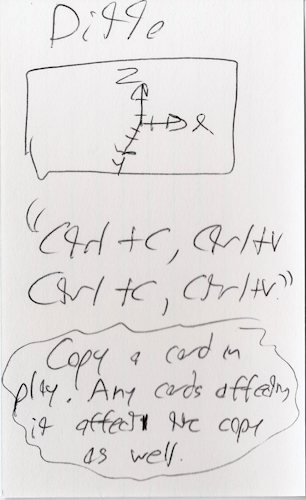 Ditto
Z
X
Y
"Ctrl+C, Ctrl+V
Ctrl+C, Ctrl+V."
Copy a card in
play. Any cards affecting
it affect the copy
as well.